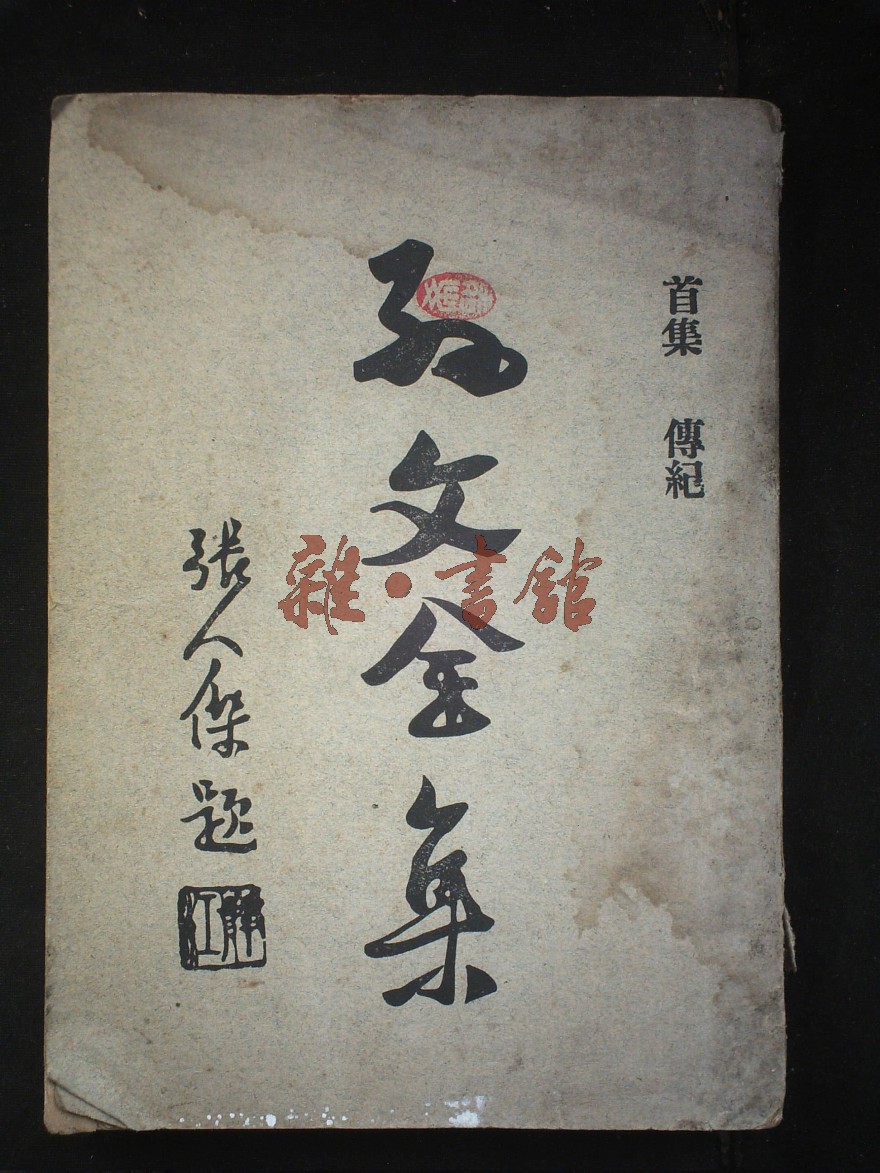 首集 傳紀
孫文全集
張人傑題
靜江
雜·書館